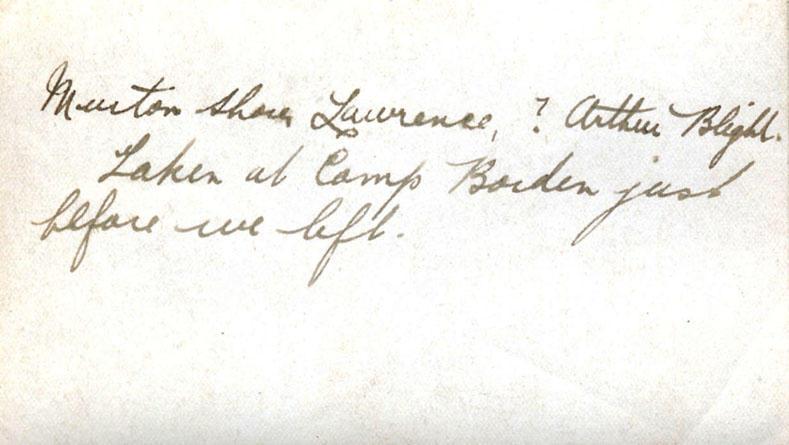 Murton Shaw Lawrence, ? Arthur Blight.
Taken at Camp Borden just
before we left.